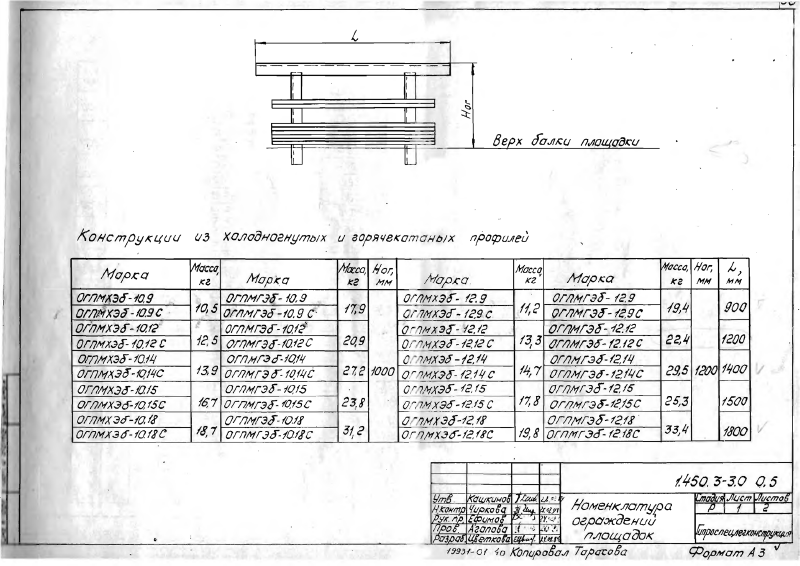 L
Ног
Верх балки площадки
Конструкции из холодногнутых и горячекатаных профилей
Марка Масса, кг Марка Масса, кг Ног, мм Марка Масса, кг Марка Масса, кг Ног, мм L, мм
ОГПМХЭБ-10.9 ОГПМГЭБ-10.9 ОГПМХЭБ-12.9 ОГПМГЭБ-12.9
ОГПМХЭБ-10.9С 10,5 ОГПМГЭБ-10.9С 17,9 ОГПМХЭБ-12.9С 11,2 ОГПМГЭБ-12.9С 19,4 900
ОГПМХЭБ-10.12 ОГПМГЭБ-10.12 ОГПМХЭБ-12.12 ОГПМГЭБ-12.12
ОГПМХЭБ-10.12С 12,5 ОГПМГЭБ-10.12С 20,9 ОГПМХЭБ-12.12С 13,3 ОГПМГЭБ-12.12С 22,4 1200
ОГПМХЭБ-10.14 ОГПМГЭБ-10.14 ОГПМХЭБ-12.14 ОГПМГЭБ-12.14
ОГПМХЭБ-10.14С 13,9 ОГПМГЭБ-10.14С 27,2 1000 ОГПМХЭБ-12.14С 14,7 ОГПМГЭБ-12.14С 29,5 1200 1400
ОГПМХЭБ-10.15 ОГПМГЭБ-10.15 ОГПМХЭБ-12.15 ОГПМГЭБ-12.15
ОГПМХЭБ-10.15С 16,7 ОГПМГЭБ-10.15С 23,8 ОГПМХЭБ-12.15С 17,8 ОГПМГЭБ-12.15С 25,3 1500
ОГПМХЭБ-10.18 ОГПМГЭБ-10.18 ОГПМХЭБ-12.18 ОГПМГЭБ-12.18
ОГПМХЭБ-10.18С 18,7 ОГПМГЭБ-10.18С 31,2 ОГПМХЭБ-12.18С 19,8 ОГПМГЭБ-12.18С 33,4 1800
1.450.3-3.0 0.5
Утв Кашкинов
Н.контр Чиркова
Рук. пр. Ефимов
Пров Агапова
Разраб Цветкова
Номенклатура
ограждений
площадок
Стадия Лист Листов
Р 1 2
Гипроспецлегконструкция
19931-01 40 Копировал Тарасова Формат А3